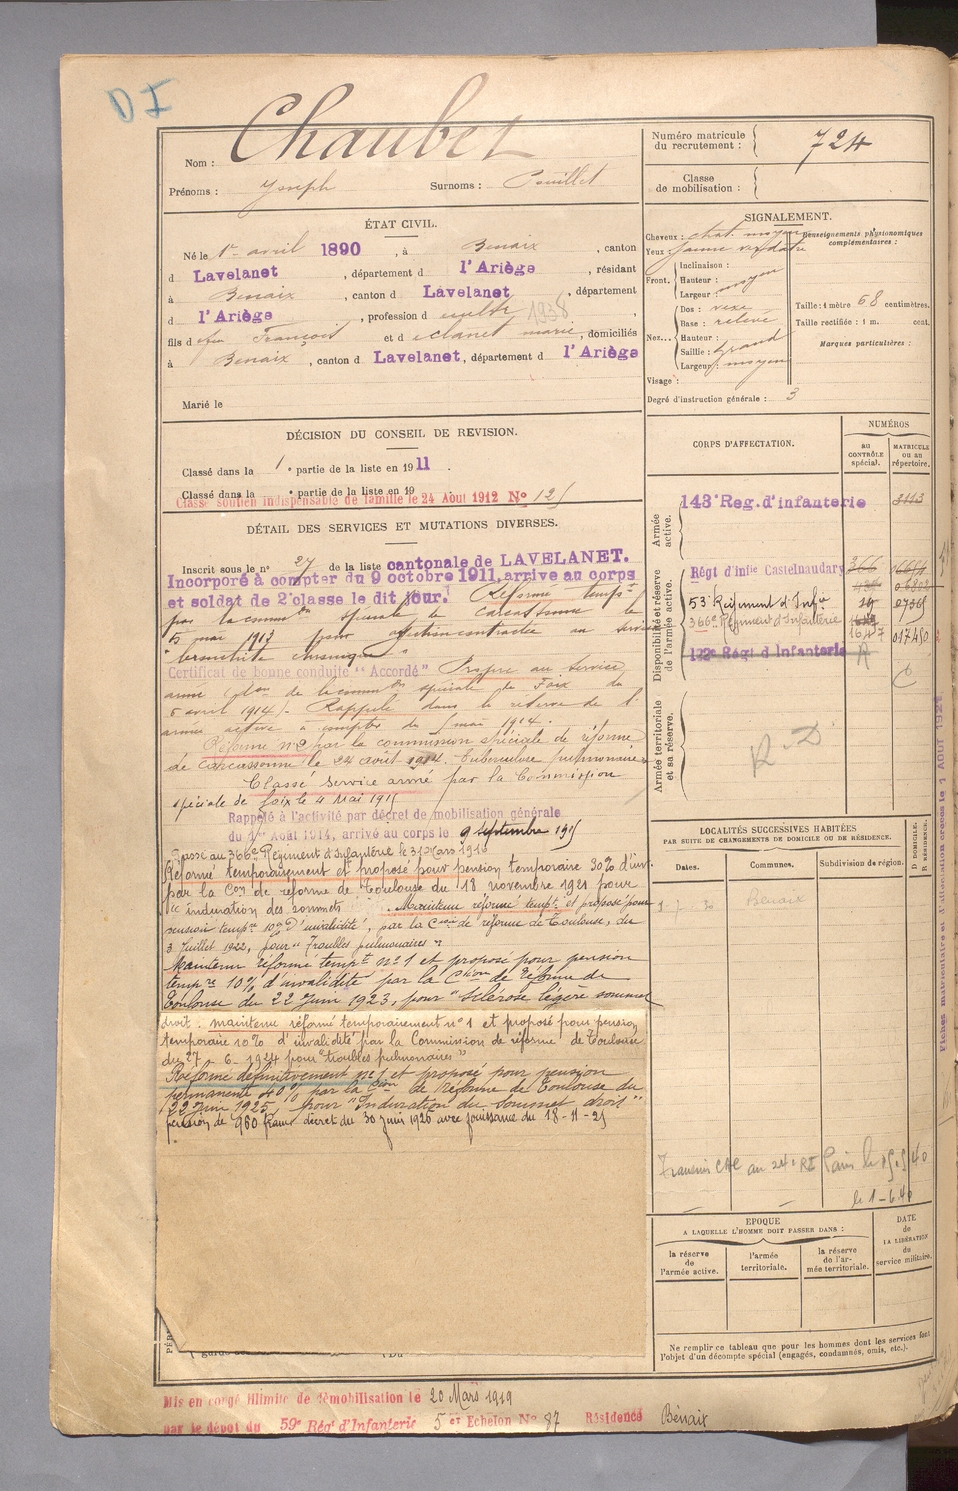 DI
Chaubet
Nom :
Prénoms : Joseph Surnoms : Pouillet
Numéro matricule
du recrutement : 724
Classe
de mobilisation :
ÉTAT CIVIL.
Né le 1er avril 1890, à Benaix, canton
d Lavelanet, département d l'Ariège, résidant
à Benaix, canton d Lavelanet, département
d l'Ariège, profession d cultr 1938,
fils d feu François et d eclanet marie, domiciliés
à Benaix, canton d Lavelanet, département d l'Ariège
Marié le
SIGNALEMENT.
Cheveux : chat. moyen
Yeux : jaune verdatre
Renseignements physionomiques
complémentaires :
Front. Inclinaison :
Hauteur : moyen
Largeur :
Nez... Dos : vexe
Base : relevé
Hauteur :
Saillie : grand
Largeur : moyen
Visage :
Degré d'instruction générale : 3
Taille : 1 mètre 68 centimètres.
Taille rectifiée : 1 m. cent.
Marques particulières :
DÉCISION DU CONSEIL DE REVISION.
Classé dans la 1e partie de la liste en 1911.
Classé dans la e partie de la liste en 19
Classé soutien indispensable de famille le 24 Août 1912 No 125
DÉTAIL DES SERVICES ET MUTATIONS DIVERSES.
Inscrit sous le no 27 de la liste cantonale de LAVELANET.
Incorporé à compter du 9 octobre 1911, arrive au corps
et soldat de 2e classe le dit jour. Réformé tempt
par la common spéciale de Carcassonne le
5 mai 1913 pour affection contractée au service
"bronchite chronique"
Certificat de bonne conduite "Accordé" Propre au service
armé de la common spéciale de Foix du
6 avril 1914). Rappelé dans la réserve de l'
armée active à compter du mai 1914.
Réformé no 2 par la commission spéciale de réforme
de Carcassonne le 24 août 1914. Tuberculose pulmonaire
Classé service armé par la Commission
spéciale de Foix le 4 Mai 1915
Rappelé à l'activité par décret de mobilisation générale
du 1er Août 1914, arrivé au corps le 9 septembre 1915
Passé au 366e Régiment d'Infanterie le 31 Mars 1916
Réformé temporairement et proposé pour pension temporaire 30% d'inv.
par la Con de réforme de Toulouse du 18 novembre 1921 pour
induration des sommets Maintenu réformé tempt et proposé pour
pension tempre 10% d'invalidité, par la Con de réforme de Toulouse, du
3 Juillet 1922, pour "Troubles pulmonaires"
Maintenu réformé tempt no 1 et proposé pour pension
tempre 10% d'invalidité par la Cion de réforme de
Toulouse du 22 Juin 1923, pour "sclérose légère sommet
droit. maintenu réformé temporairement no 1 et proposé pour pension
temporaire 10% d'invalidité par la Commission de réforme de Toulouse
du 27-6-1924 pour "troubles pulmonaires"
Réformé définitivement no 1 et proposé pour pension
permanente 40% par la Con de réforme de Toulouse du
22 Juin 1925 pour "Induration du sommet droit"
pension de 960 francs décret du 30 juin 1926 avec jouissance du 18-11-25
CORPS D'AFFECTATION.
NUMÉROS
au
CONTRÔLE
spécial.
MATRICULE
ou au
répertoire.
Armée
active.
143e Reg. d'infanterie 3113
Disponibilité et réserve
de l'armée active.
Régt d'infie Castelnaudary 266
53e Régiment d'Infie
366e Régiment d'Infanterie 1647 017450
122e Régt d'Infanterie R
Armée territoriale
et sa réserve.
R. D
LOCALITÉS SUCCESSIVES HABITÉES
PAR SUITE DE CHANGEMENTS DE DOMICILE OU DE RÉSIDENCE.
Dates. Communes. Subdivision de région.
D DOMICILE.
R RÉSIDENCE.
Benaix
au 24e RI Paris le
le 1-6.40
ÉPOQUE
A LAQUELLE L'HOMME DOIT PASSER DANS :
la réserve
de
l'armée active.
l'armée
territoriale.
la réserve
de l'ar-
mée territoriale.
DATE
de
LA LIBÉRATION
du
service militaire.
Ne remplir ce tableau que pour les hommes dont les services font
l'objet d'un décompte spécial (engagés, condamnés, omis, etc.).
Mis en congé illimité de démobilisation le 20 Mars 1919
par le dépôt du 59e Régt d'Infanterie 5er Echelon No 87 Résidence Bénaix